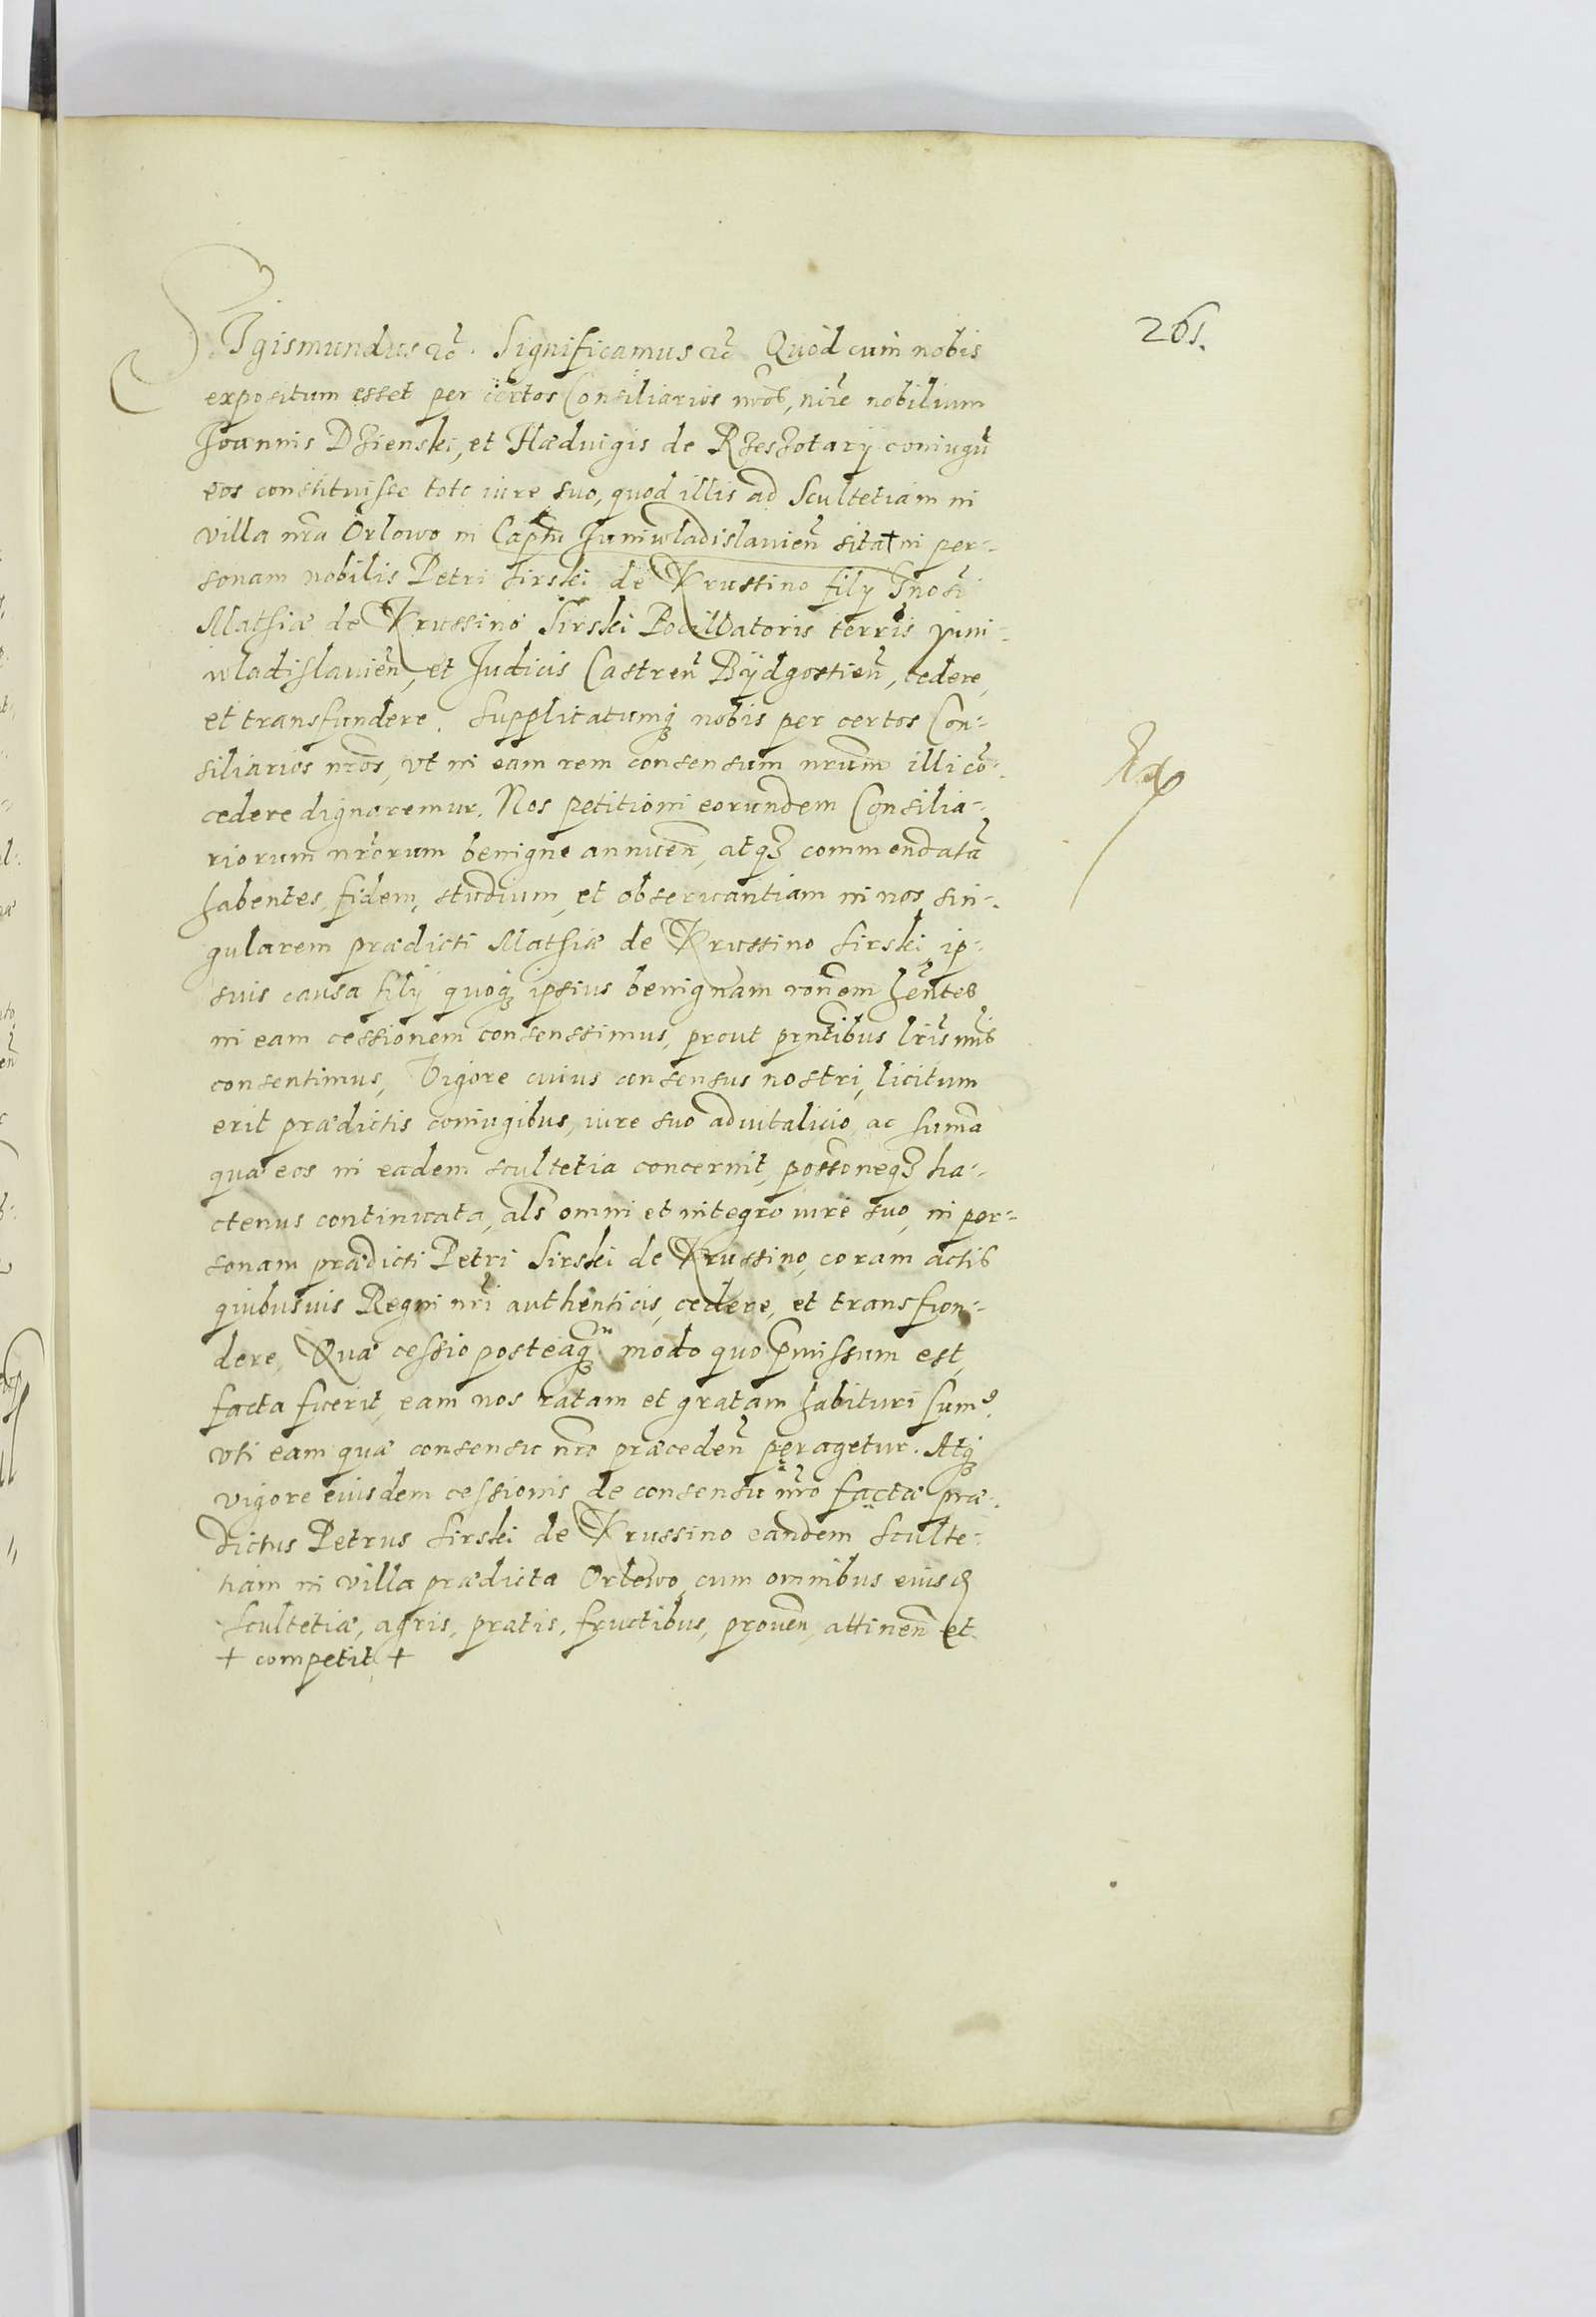 261.
Sigismundus etc. Significamus etc. Quod cum nobis
expositum esset per certos Consiliarios nros, nõie nobilium
Joannis Dzienski, et Hædvigis de Rzeszotarÿ coniugũ
eos constituisse toto iure suo, quod illis ad Scultetiam in
villa nrã Orlowo in Captũ Juniwladislavień sita † in per-
sonam nobilis Petri Sirski de Krussino filÿ Gnosi
Mathiæ de Krussino Sirski Pocillatoris terris Juni-
wladislavień, et Judicis Castreń Bÿdgostień, cedere,
et transfundere. Supplicatumq; nobis per certos Con-
siliarios nros, vt in eam rem consensum nrum illi cõ-
cedere dignaremur. Nos petitioni eorundem Consilia-
riorum nrorum benigne annueń, atq; commendatã
habentes, fidem, studium, et observantiam in nos sin-
gularem prædicti Mathiæ de Krussino Sirski, ip-
suis causa filÿ quoq; ipsius benignam rõnem hñtes
in eam cessionem consenssimus, prout prñtibus lris nris
consentimus, Vigore cuius consensus nostri, licitum
erit prædictis coniugibus, iure suo advitalicio, ac sum̃a
quæ eos in eadem scultetia concernit, possõneq; ha-
ctenus continuata, als omni et integro iure suo, in per-
sonam prædicti Petri Sirski de Krussino, coram actis
quibusuis Regni nri authenticis, cedere, et transfun-
dere, Quæ cessio posteaq;m modo quo p̃missum est,
facta fuerit, eam nos ratam et gratam habituri sumus,
vti eam quæ consensu nro præcedeń peragetur. Atq;
vigore eiusdem cessionis de consensu nro factæ præ-
dictus Petrus Sirski de Krussino eandem Sculte-
tiam in villa prædicta Orlowo, cum omnibus eiusd
Scultetiæ, agris, pratis, fructibus, proueń, attineń et
† competit, †